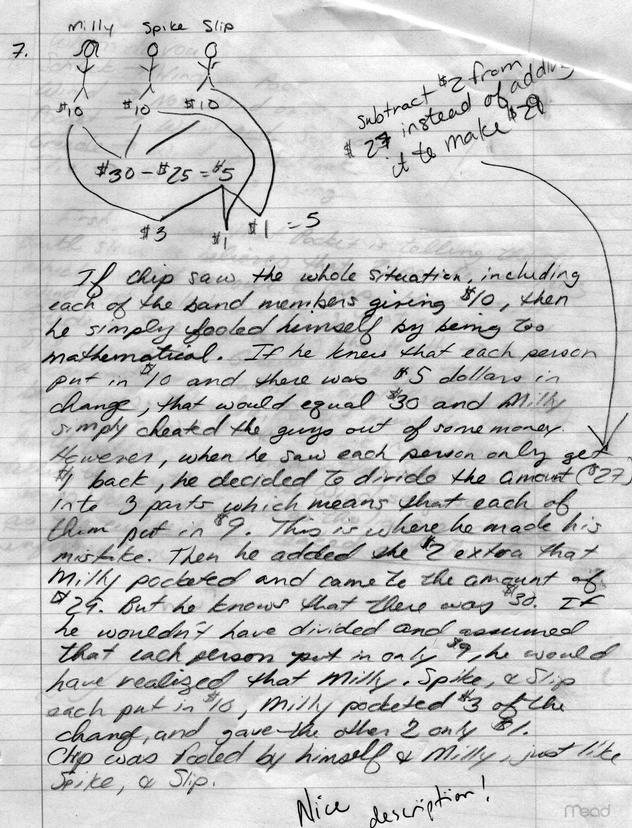 Milly Spike Slip
7.
$10 $10 $10
subtract $2 from
$27 instead of adding
it to make $29
$30 - $25 = $5
$3 $1 $1 = 5
If Chip saw the whole situation, including
each of the band members giving $10, then
he simply fooled himself by being too
mathematical. If he knew that each person
put in $10 and there was $5 dollars in
change, that would equal $30 and Milly
simply cheated the guys out of some money.
However, when he saw each person only get
$1 back, he decided to divide the amount ($27)
into 3 parts which means that each of
them put in $9. This is where he made his
mistake. Then he added the $2 extra that
Milly pocketed and came to the amount of
$29. But he knows that there was $30. If
he wouldn't have divided and assumed
that each person put in only $9, he would
have realized that Milly, Spike, & Slip
each put in $10, Milly pocketed $3 of the
change, and gave the other 2 only $1.
Chip was fooled by himself & Milly, just like
Spike, & Slip.
Nice description!
Mead